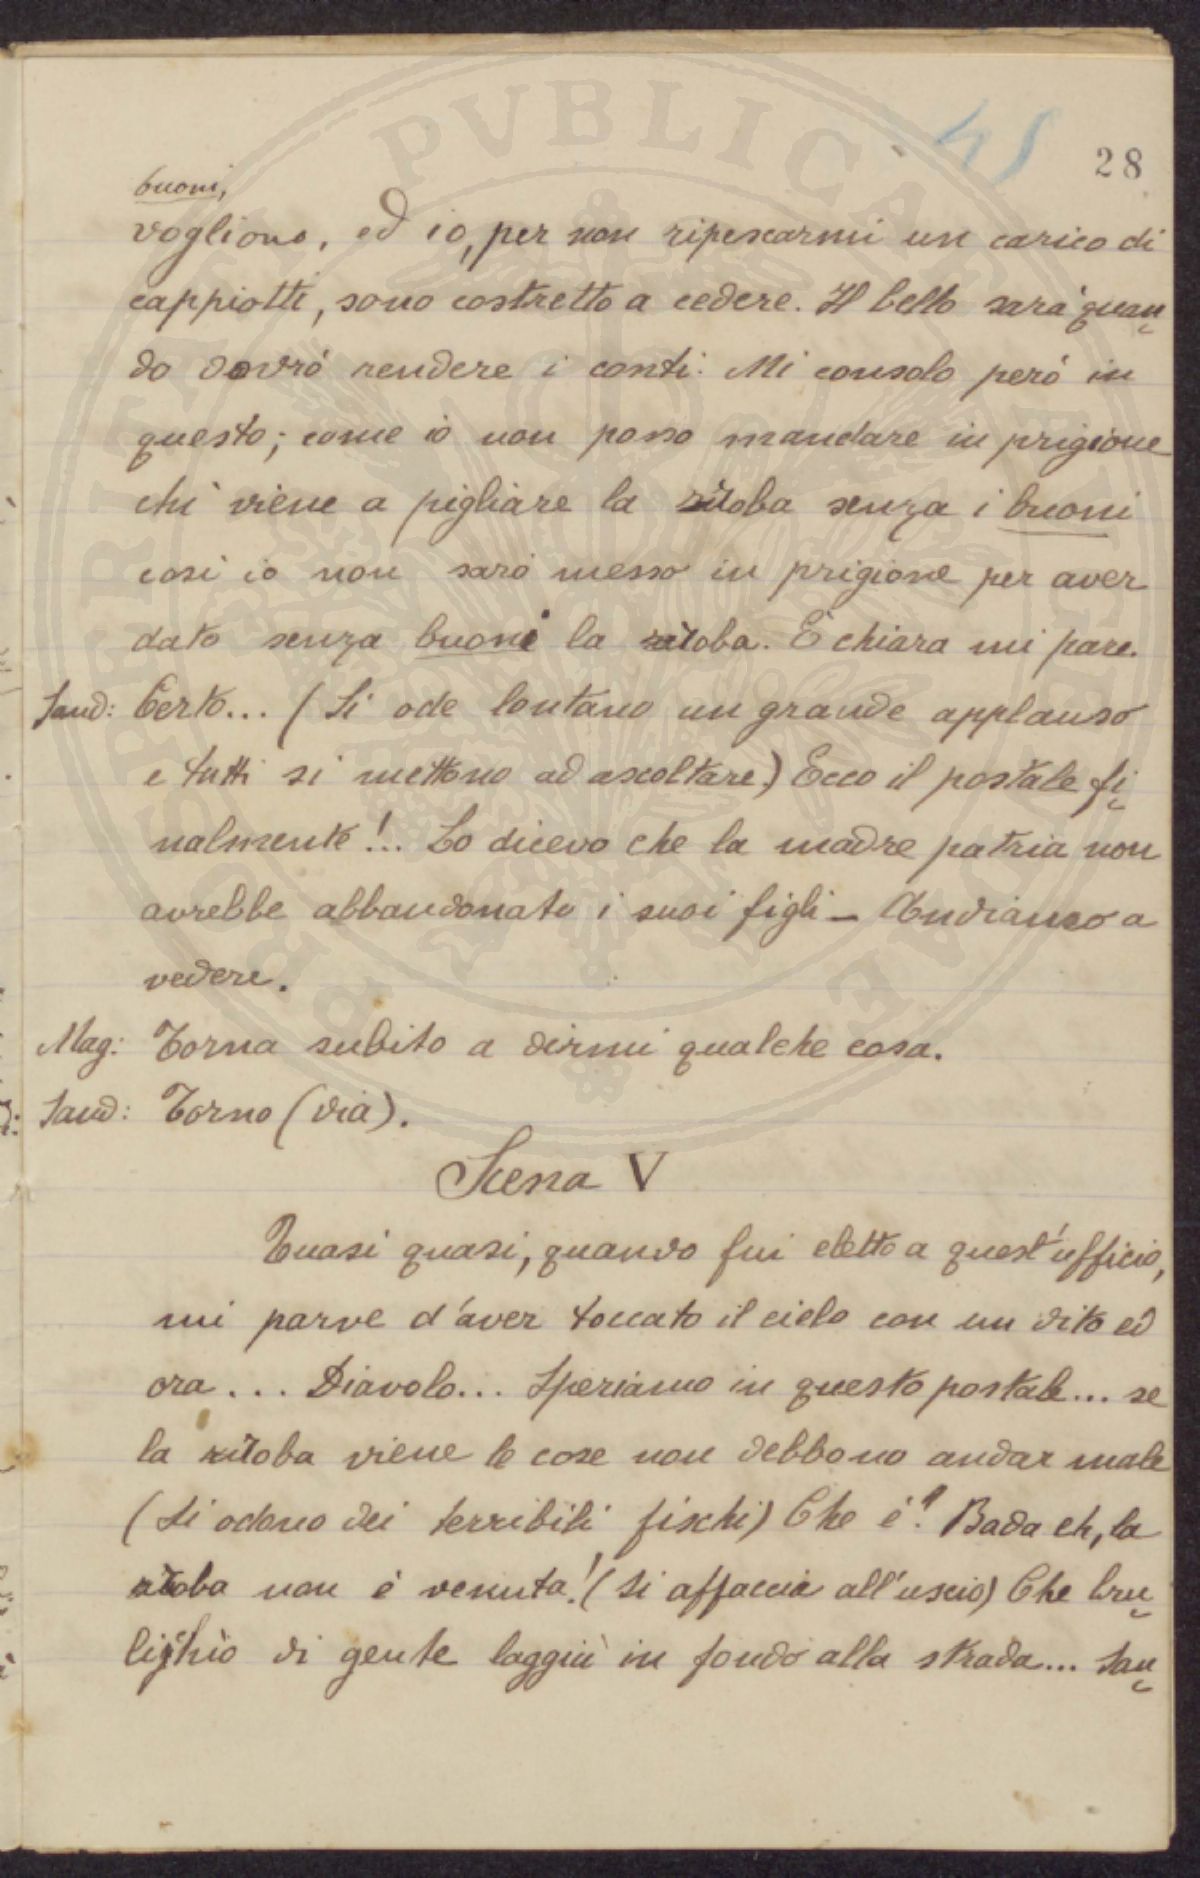 PVBLICAE
45
28
buoni,
vogliono, ed io, per non ripescarmi un carico di
cappiotti, sono costretto a cedere. Il bello sarà quan
do dovrò rendere i conti. Mi consolo però in
questo; come io non posso mandare in prigione
chi viene a pigliare la ritoba senza i buoni
così io non sarò messo in prigione per aver
dato senza buoni la ritoba. È chiara mi pare.
Sand: Certo... (Si ode lontano un grande applauso
e tutti si mettono ad ascoltare) Ecco il postale fi
nalmente!.. Lo dicevo che la madre patria non
avrebbe abbandonato i suoi figli - Andiamo a
vedere.
Mag: Torna subito a dirmi qualche cosa.
Sand: Torno (via).
Scena V
Quasi quasi, quando fui eletto a quest'ufficio,
mi parve d'aver toccato il cielo con un dito ed
ora... Diavolo... Speriamo in questo postale... se
la ritoba viene le cose non debbono andar male
(Si odono dei terribili fischi) Che è? Bada eh, la
ritoba non è venuta! (Si affaccia all'uscio) Che bru
lichìo di gente laggiù in fondo alla strada... San